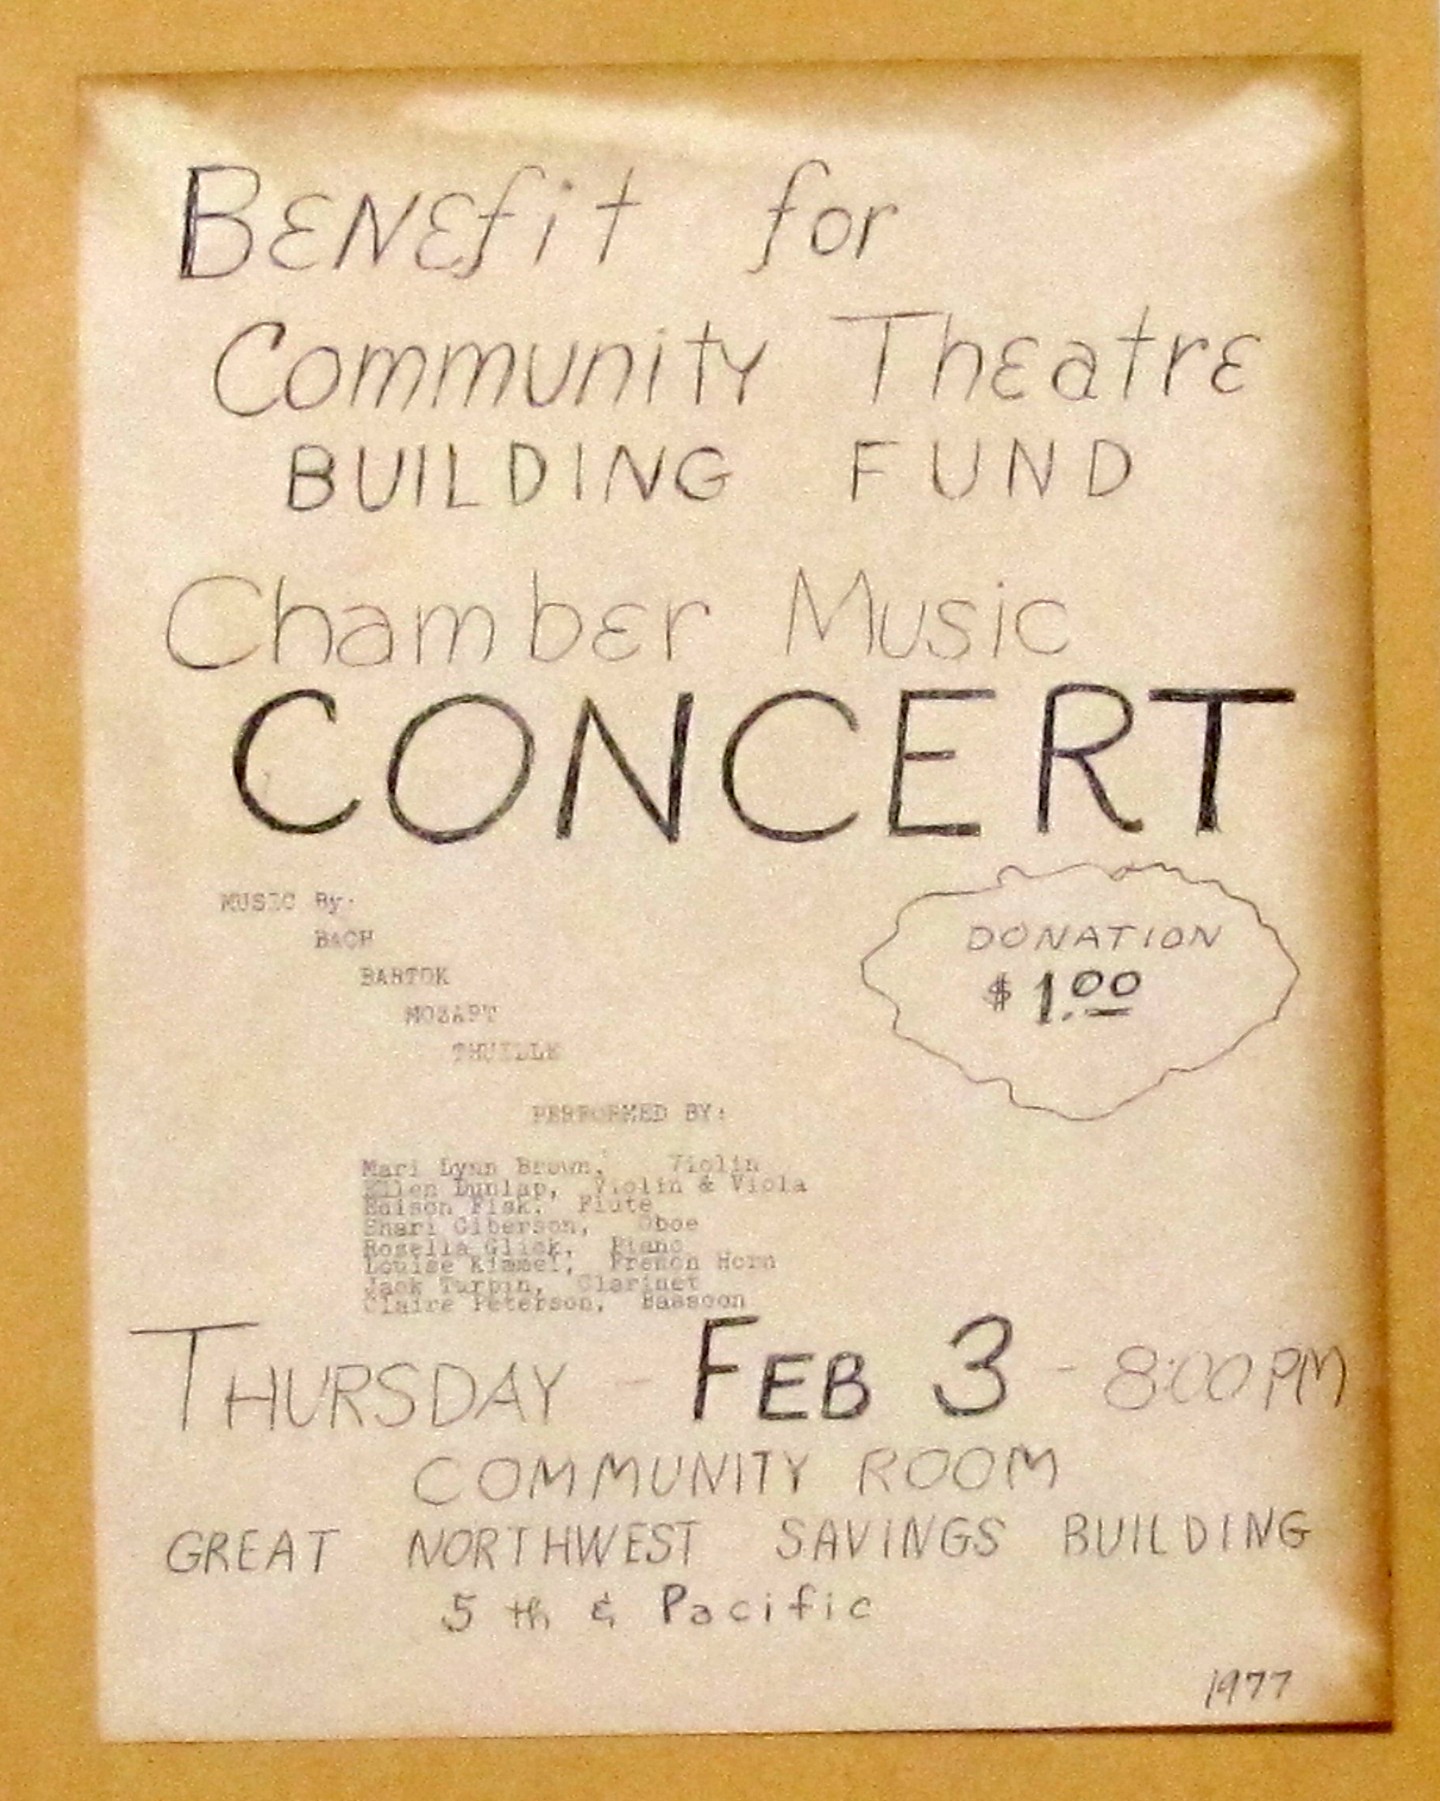 Benefit for
Community Theatre
BUILDING FUND
Chamber Music
CONCERT
MUSIC By:
BACH
BARTOK
MOZART
THUILLE
DONATION
$1.00
PERFORMED BY:
Mari Lynn Brown, Violin
Ellen Dunlap, Violin & Viola
Edison Fisk, Flute
Shari Giberson, Oboe
Rosella Glick, Piano
Louise Kimmel, French Horn
Jack Turpin, Clarinet
Claire Peterson, Bassoon
THURSDAY - FEB 3 - 8:00 PM
COMMUNITY ROOM
GREAT NORTHWEST SAVINGS BUILDING
5th & Pacific
1977